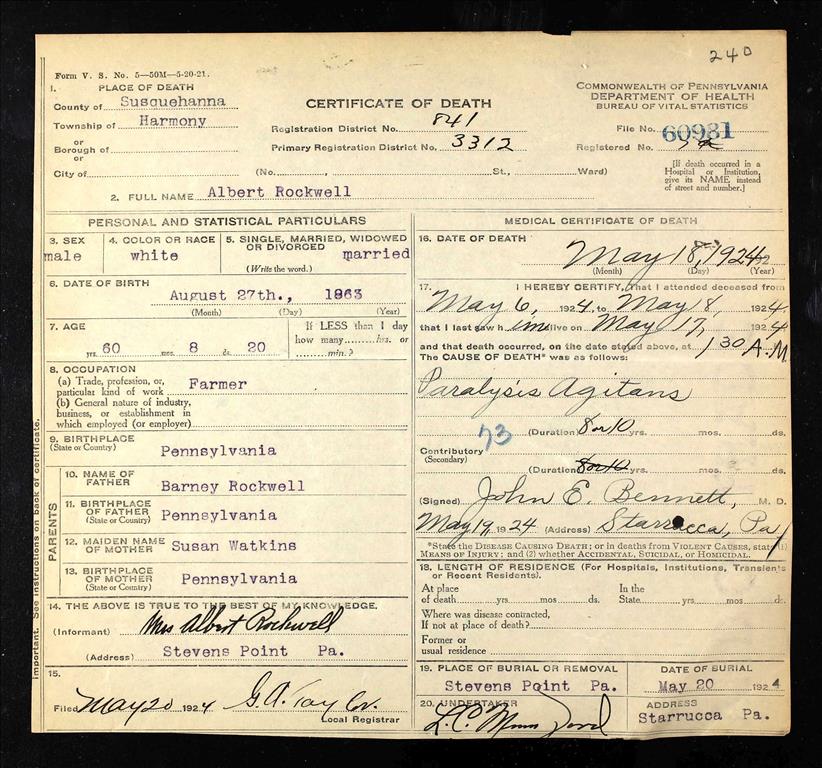 240
Form V. S. No. 5—50M—5-20-21.
1. PLACE OF DEATH
County of Susquehanna
Township of Harmony
or
Borough of
or
City of
CERTIFICATE OF DEATH
Registration District No. 841
Primary Registration District No. 3312
(No. , St., Ward)
COMMONWEALTH OF PENNSYLVANIA
DEPARTMENT OF HEALTH
BUREAU OF VITAL STATISTICS
File No. 60981
Registered No.
[If death occurred in a
Hospital or Institution,
give its NAME instead
of street and number.]
2. FULL NAME Albert Rockwell
PERSONAL AND STATISTICAL PARTICULARS
3. SEX
male
4. COLOR OR RACE
white
5. SINGLE, MARRIED, WIDOWED
OR DIVORCED
married
(Write the word.)
6. DATE OF BIRTH
August 27th., 1863
(Month) (Day) (Year)
7. AGE
60 yrs. 8 mos. 20 ds.
If LESS than 1 day
how many hrs. or
min.?
8. OCCUPATION
(a) Trade, profession, or,
particular kind of work Farmer
(b) General nature of industry,
business, or establishment in
which employed (or employer)
9. BIRTHPLACE
(State or Country)
Pennsylvania
PARENTS
10. NAME OF
FATHER
Barney Rockwell
11. BIRTHPLACE
OF FATHER
(State or Country)
Pennsylvania
12. MAIDEN NAME
OF MOTHER
Susan Watkins
13. BIRTHPLACE
OF MOTHER
(State or Country)
Pennsylvania
14. THE ABOVE IS TRUE TO THE BEST OF MY KNOWLEDGE.
(Informant) Mrs Albert Rockwell
(Address) Stevens Point Pa.
15.
Filed May 20 1924 G.A. Taylor
Local Registrar
Important. See instructions on back of certificate.
MEDICAL CERTIFICATE OF DEATH
16. DATE OF DEATH
May 18, 1924
(Month) (Day) (Year)
17. I HEREBY CERTIFY, That I attended deceased from
May 6, 1924, to May 18, 1924
that I last saw him alive on May 17, 1924
and that death occurred, on the date stated above, at 1 30 A.M.
The CAUSE OF DEATH* was as follows:
Paralysis Agitans
73
(Duration) 8 or 10 yrs. mos. ds.
Contributory
(Secondary)
(Duration) 8 or 10 yrs. mos. ds.
(Signed) John E. Bennett, M. D.
May 19, 1924 (Address) Starrucca, Pa
*State the DISEASE CAUSING DEATH; or in deaths from VIOLENT CAUSES, state (1)
MEANS OF INJURY; and (2) whether ACCIDENTAL, SUICIDAL, or HOMICIDAL.
18. LENGTH OF RESIDENCE (For Hospitals, Institutions, Transients
or Recent Residents).
At place
of death yrs. mos. ds.
In the
State yrs. mos. ds.
Where was disease contracted,
If not at place of death?
Former or
usual residence
19. PLACE OF BURIAL OR REMOVAL
Stevens Point Pa.
DATE OF BURIAL
May 20 1924
20. UNDERTAKER
L.C.
ADDRESS
Starrucca Pa.